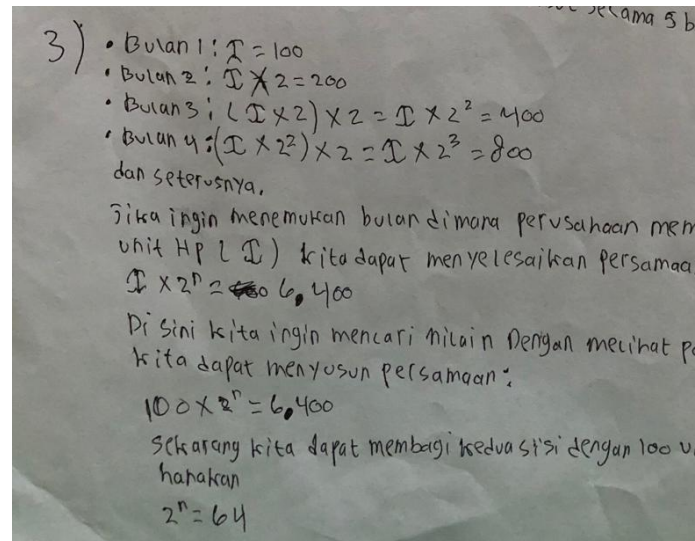 selama 5 b
3) • Bulan 1 : I = 100
• Bulan 2 : I X 2 = 200
• Bulan 3 : (I X 2) X 2 = I X 2² = 400
• Bulan 4 : (I X 2²) X 2 = I X 2³ = 800
dan seterusnya,
Jika ingin menemukan bulan dimana perusahaan mem
unit HP (I) kita dapat menyelesaikan Persamaa
I X 2ⁿ = 6,400
Di sini kita ingin mencari nilain Dengan melihat p
kita dapat menyusun persamaan :
100 X 2ⁿ = 6,400
Sekarang kita dapat membagi kedua sisi dengan 100 u
hanakan
2ⁿ = 64